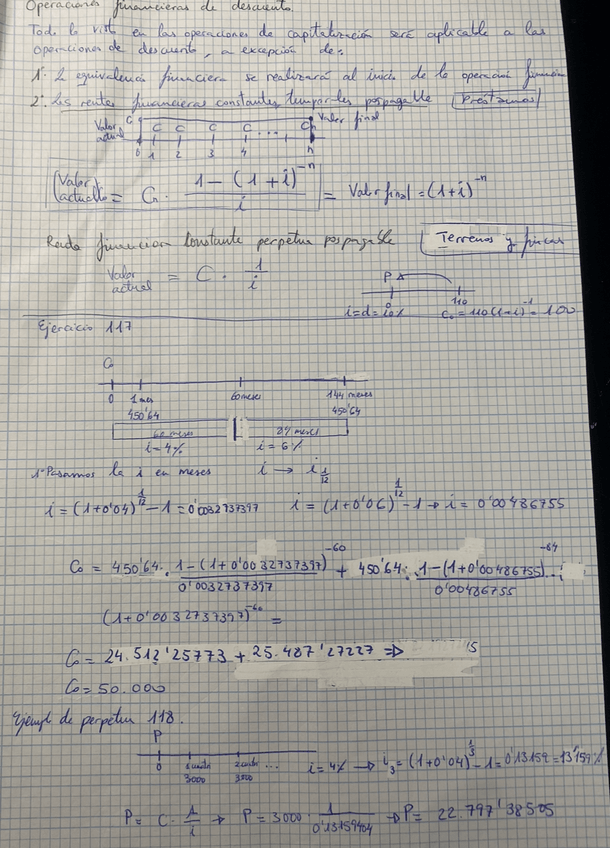 Operaciones financieras de descuento.
Todo lo visto en las operaciones de capitalización será aplicable a las
operaciones de descuento, a excepción de:
1º La equivalencia financiera se realizará al inicio de la operación
2º Las rentas financieras constantes temporales pospagable Préstamos
Valor actual C C C C ... C Valor final
0 1 2 3 4 n
Valor actual = C · 1-(1+i)^-n / i = Valor final = (1+i)^-n
Renta financiera constante perpetua pospagable Terrenos y fincas
Valor actual = C · 1/i
P
0 110
i=d=10% C₀=110(1-i)^-1=100
Ejercicio 117
C₀
0 1 mes 60 meses 144 meses
450'64 450'64
60 meses 84 meses
i=4% i=6%
1º Pasamos la i en meses i → i 1/12
i=(1+0'04)^1/12 -1=0'0032737397 i=(1+0'06)^1/12 -1→i=0'00486755
C₀ = 450'64 · 1-(1+0'0032737397)^-60 / 0'0032737397 + 450'64 · 1-(1+0'00486755)^-84 / 0'00486755
(1+0'0032737397)^-60 =
C₀ = 24.512'25773 + 25.487'27227 ⇒
C₀ = 50.000
Ejemplo de perpetua 118.
P
0 ...
3000 3000
i=4% → i₃=(1+0'04)^1/3 -1=0'13159=13'159%
P= C · 1/i → P=3000 · 1/0'13159404 → P= 22.797'38505